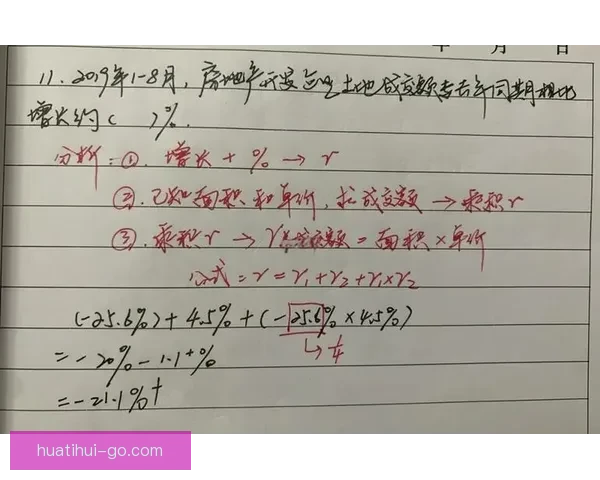 年 月 日
11. 2019年1-8月，房地产开发企业土地成交额与去年同期相比
增长约（ ）%.
分析：①. 增长+%→r
②. 已知面积和单价，求成交额→乘积r
③. 乘积r→成交额=面积×单价
公式=r=r₁+r₂+r₁×r₂
(-25.6%)+4.5%+(-25.6%×4.5%)
↳ 1/4
=-20%-1.1⁺%
=-21.1%⁺
huatihui-go.com